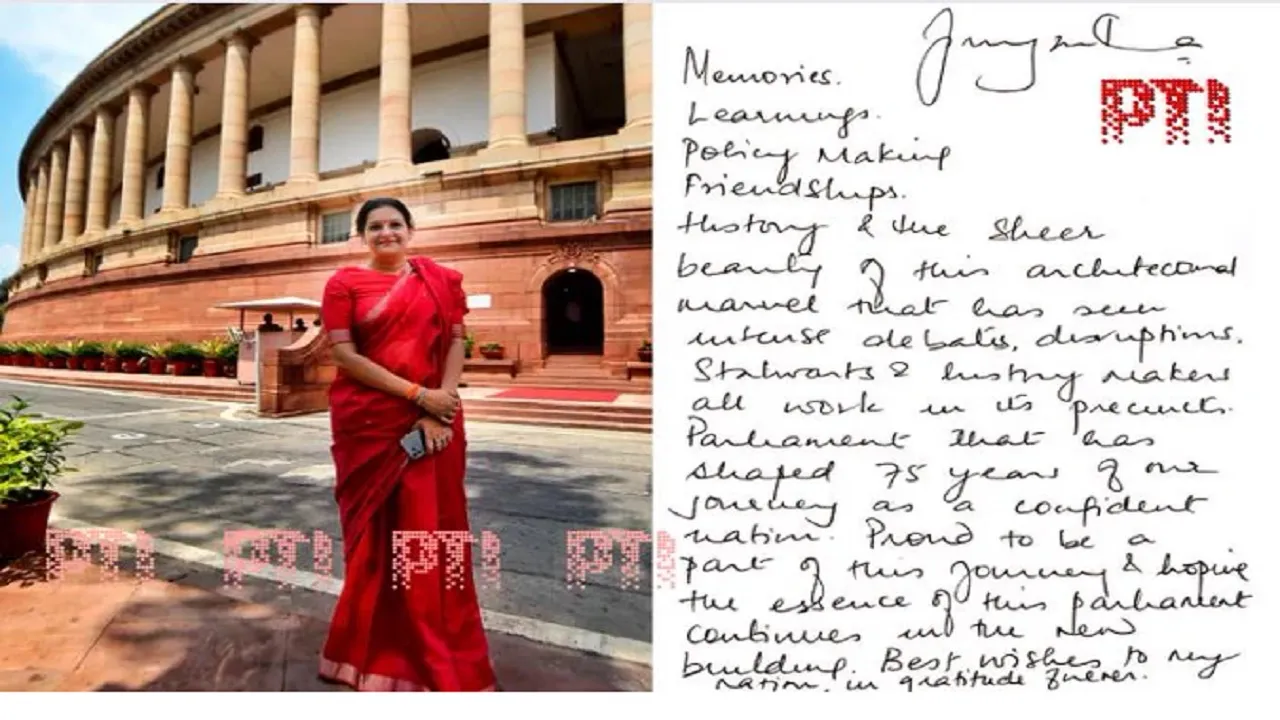 PTI
Memories.
Learnings.
Policy Making
Friendships.
History & the sheer
beauty of this architectural
marvel that has seen
intense debates, disruptions.
Stalwarts & history makers
all work in its precincts.
Parliament that has
shaped 75 years of our
journey as a confident
nation. Proud to be a
part of this journey & hoping
the essence of this parliament
continues in the new
building. Best wishes to my
nation, in gratitude forever.
PTI PTI PTI PTI